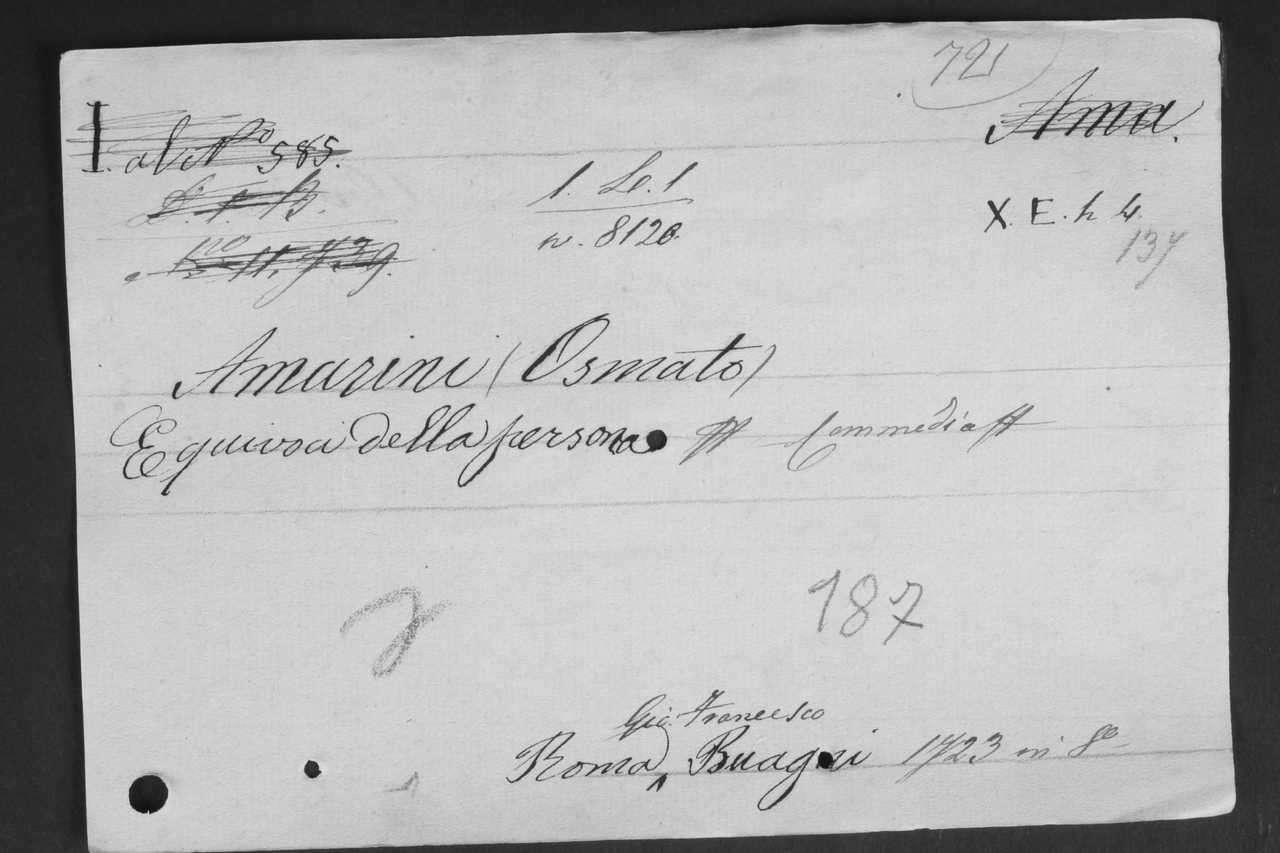 721
Ama.
I. al No 585.
1. Le. 1
n. 8120.
X. E. h 4.
137
no 11. 739.
Amarini (Osmato)
Equivoci della persona # Commedia #
187
Gio. Francesco
Roma Buagni 1723 in 8o